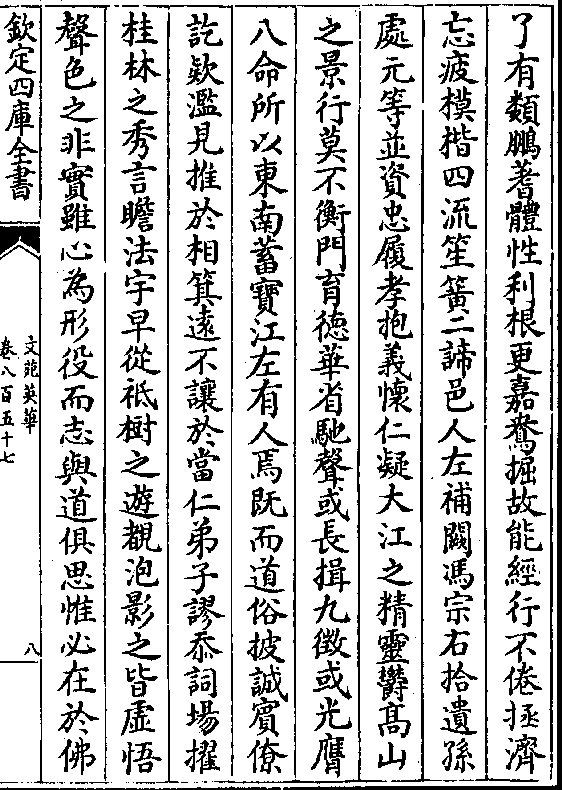 了有類鵬蓍體性利根更嘉鴦掘故能經行不倦拯濟
忘疲模楷四流笙簧二諦邑人左補闕馮宗右拾遺孫
處元等並資忠履孝抱義懷仁凝大江之精靈欝髙山
之景行莫不衡門育德華省馳聲或長揖九徴或光膺
八命所以東南蓄寶江左有人焉既而道俗披誠賓僚
訖欵濫見推於相箕遠不讓於當仁弟子謬忝詞場擢
桂林之秀言瞻法宇早從祗樹之遊覩泡影之皆虛悟
聲色之非實雖心為形役而志與道俱思惟必在於佛
欽定四庫全書
文苑英華
卷八百五十七
八